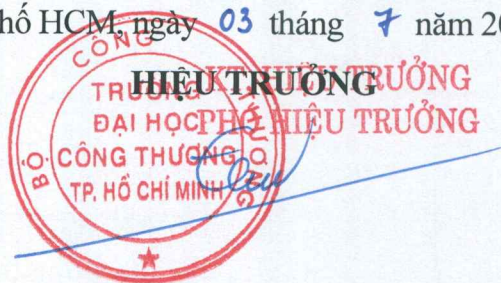 hố HCM, ngày 03 tháng 7 năm 20
HIỆU TRƯỞNG
KT. HIỆU TRƯỞNG
PHÓ HIỆU TRƯỞNG
BỘ CÔNG THƯƠNG
TRƯỜNG
ĐẠI HỌC
CÔNG THƯƠNG
TP. HỒ CHÍ MINH